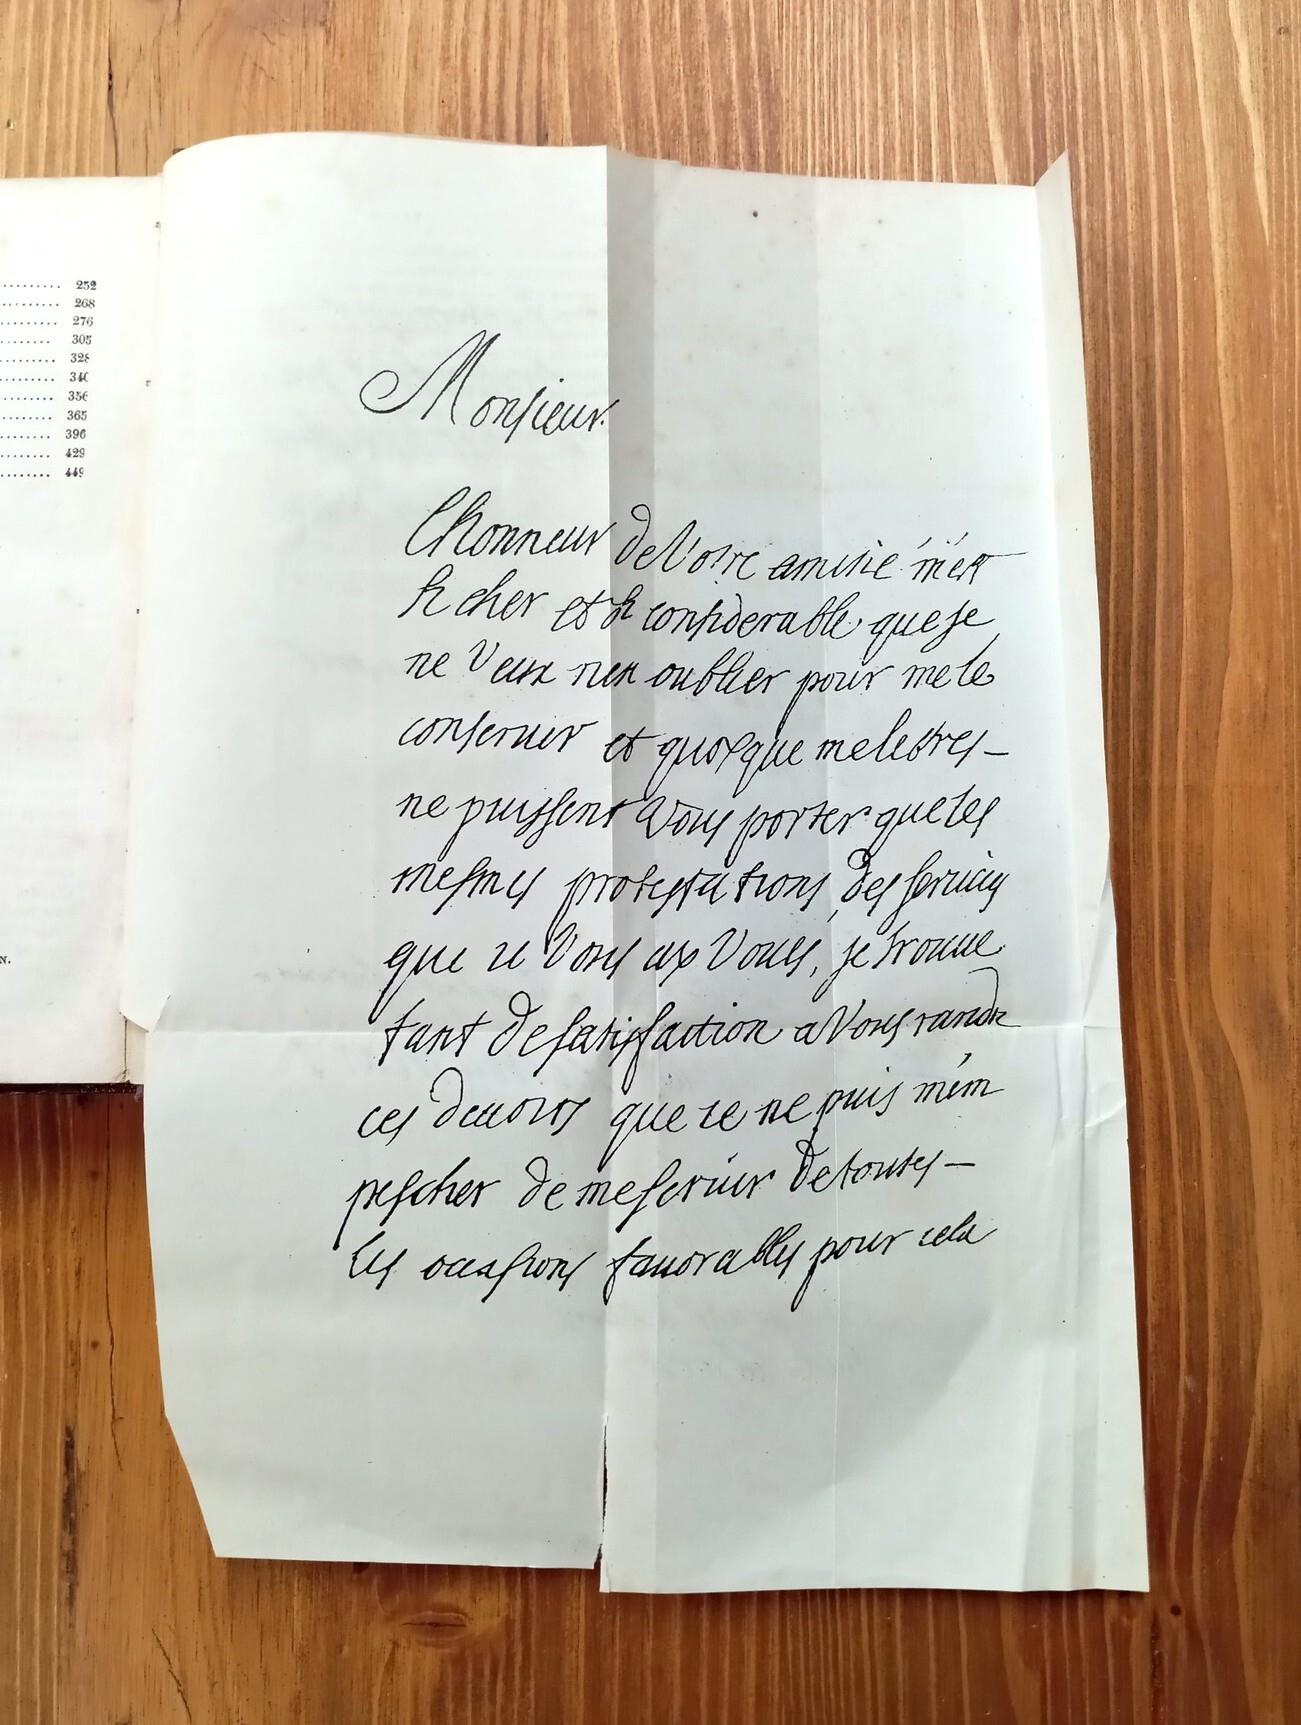 252
268
276
305
328
340
356
365
396
429
449
N.
Monsieur.
Lhonneur de Votre amitié m'est
si cher et si considerable que je
ne Veux rien oublier pour me le
conseruer et quoyque me lettres
ne puissent Vous porter que les
mesmes protestations des seruices
que ie Vous ay Voues, je trouue
tant de satisfaction a Vous randre
ces deuoirs que ie ne puis m'em
pescher de me seruir de toutes
les occasions fauorables pour cela